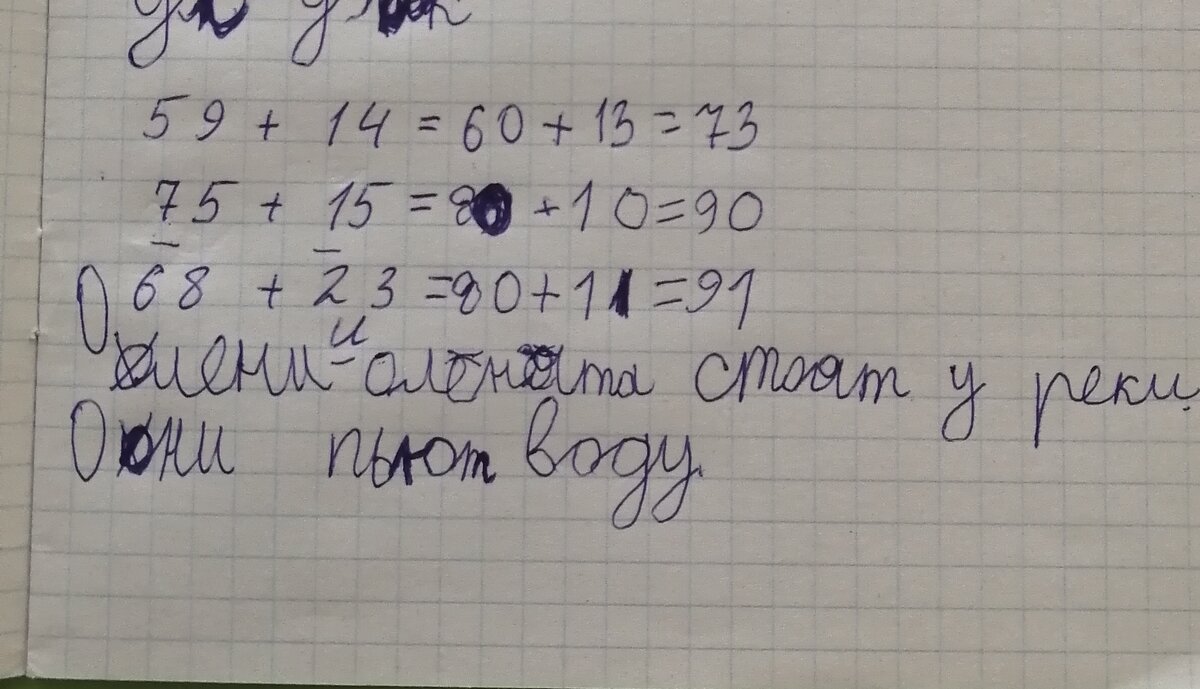 59 + 14 = 60 + 13 = 73
75 + 15 = 80 + 10 = 90
68 + 23 = 80 + 11 = 91
Олени и оленята стоят у реки.
Они пьют воду.